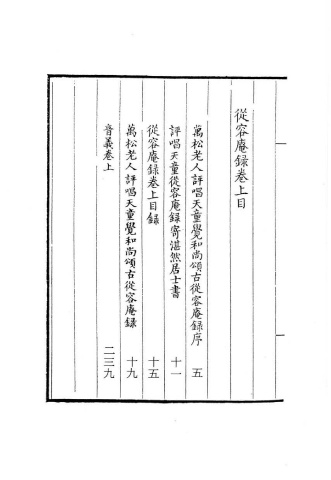 從容庵録卷上目
萬松老人評唱天童覺和尚頌古從容庵録序 五
評唱天童從容庵録寄湛然居士書 十一
從容庵録卷上目録 十五
萬松老人評唱天童覺和尚頌古從容庵録 十九
音義卷上 二三九